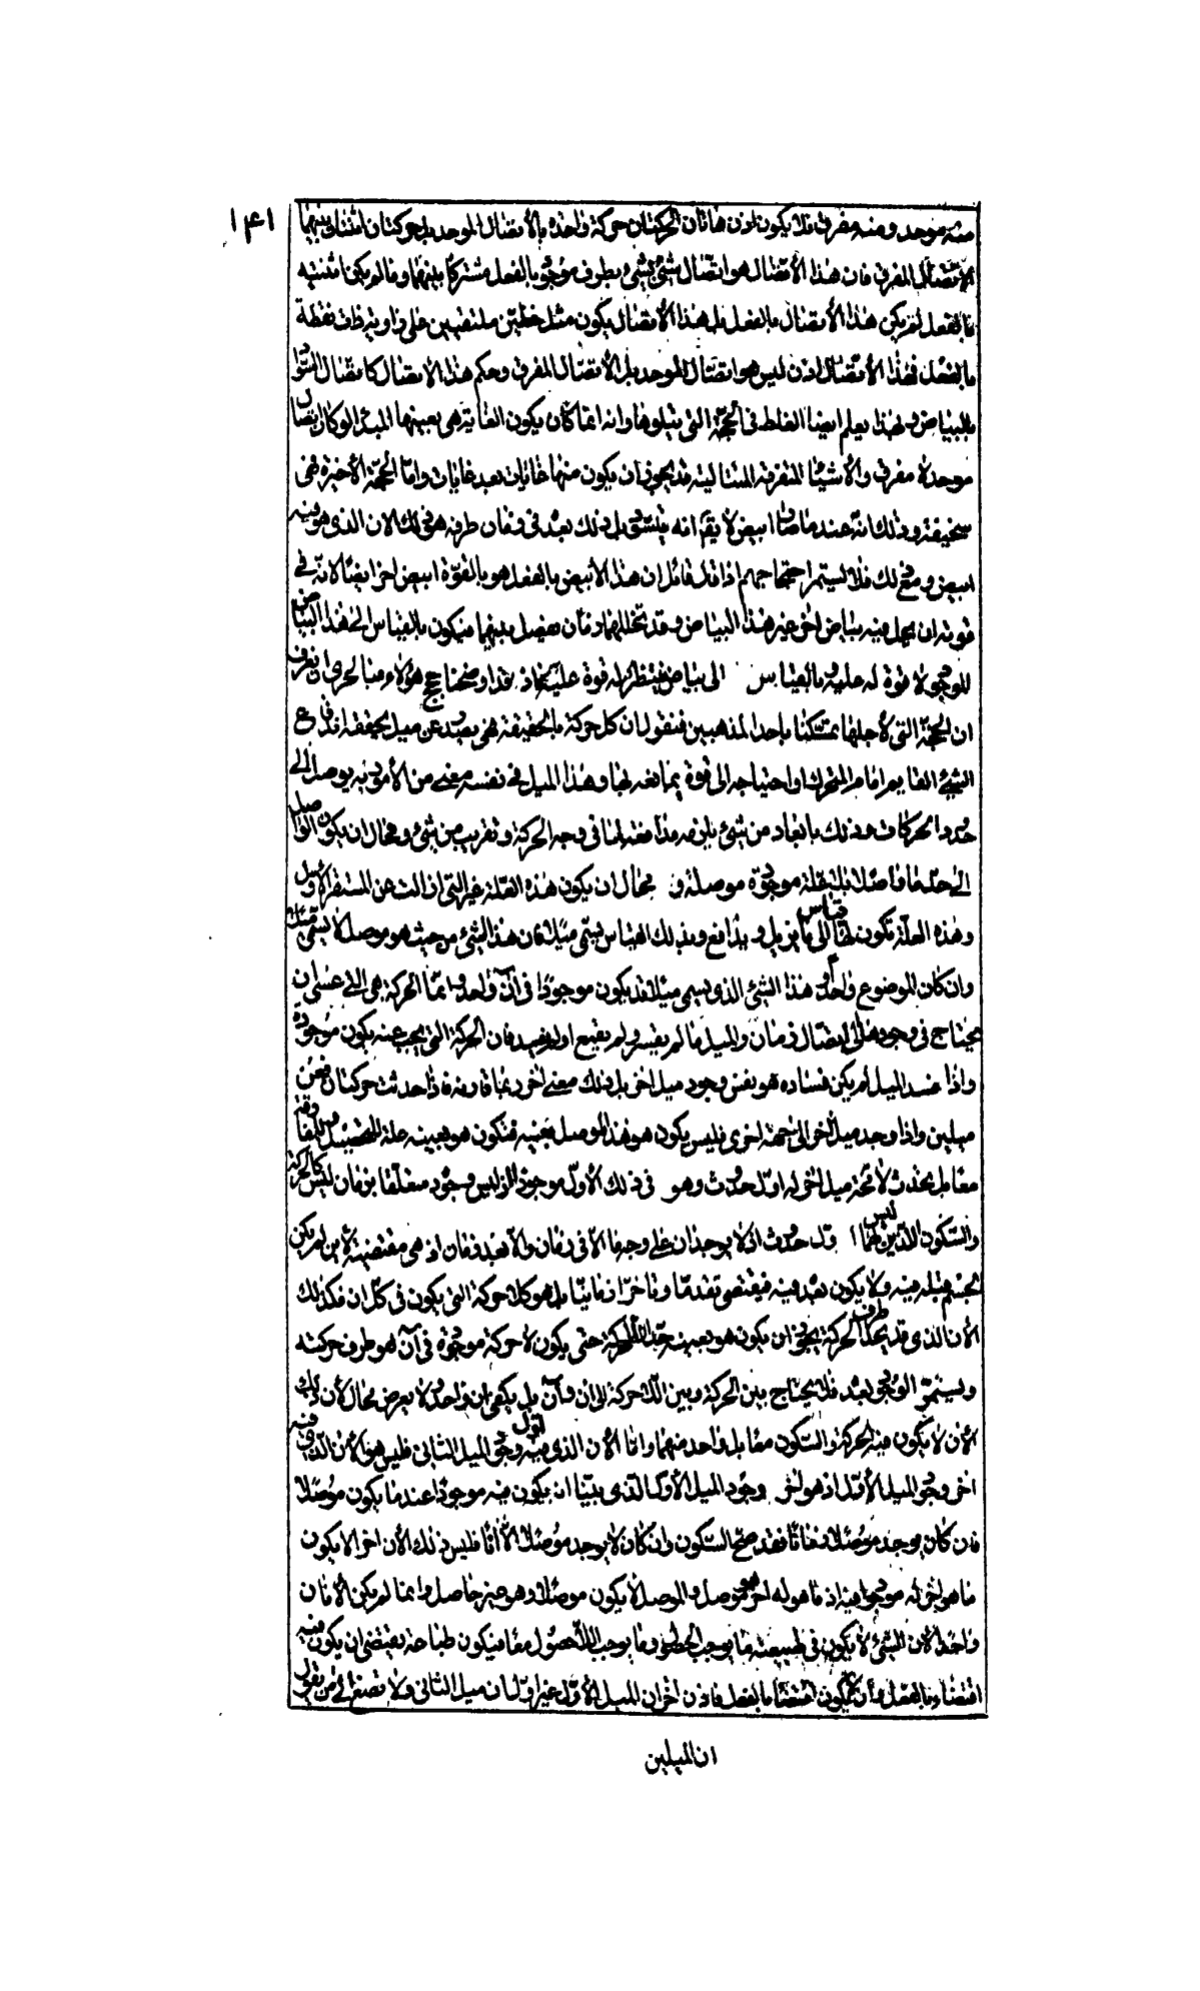 ١٤١
منه موحد ومنه مفرق فلا يكون اذن هاتان الحركتان حركة واحدة بالاتصال الموحد بل حركتان اثنتان بينهما
الاتصال المفرق فان هذا الاتصال هو اتصال شئ بشئ بطرف موجود بالفعل مشتركا بينهما وما لم يكن اثنينيه
بالفعل لم يكن هذا الاتصال بالفعل بل هذا الاتصال يكون مثل خطين ملتقيين على زاوية ذات نقطة
بالفعل فهذا الاتصال اذن ليس هو اتصال الموحد بل الاتصال المفرق وحكم هذا الاتصال كاتصال السواد
بالبياض ولهذا يعلم ايضا الغلط فى الحجة التى يتلوها وانه انما كان يكون الغاية هى بعينها المبدا لو كان اتصال
موحد لا مفرق والاشيئا المتفرقة المتتالية قد يجوز ان يكون منها غايات بعد غايات واما الحجة الاخيرة فهى
سخيفة وذلك انه عندما صار ابيض لا يقم انه يتسوّد بل ذلك بعد فى زمان طرفه هو ذلك الان الذى هو فيه
ابيض ومع ذلك فلا يستمر احتجاجهم اذا قال قائل ان هذا الابيض بالفعل هو بالقوة ابيض اخر ايضا لانه فى
قوته ان يحصل فيه بياض اخر غير هذا البياض وقد تخللهما زمان فصل بينهما فيكون بالقياس الى هذا البياض
الموجود لا قوة له عليه وبالقياس الى بياض ينتظر له قوة عليه فاذ قد اوضحنا حجج هؤلاء فبالحرى ان نعرف
ان الحجة التى لاجلها تمسكنا باحد المذهبين فنقول ان كل حركة بالحقيقة فهى يصدر عن ميل يحققه اندفاع
الشئ القايم امام المتحرك او احتياجه الى قوة يمانعه بها وهذا الميل فى نفسه معنى من الامور به يوصل الى
حدود الحركات وذلك بابعاد من شئ يلزمه مدافعة لما فى وجه الحركة وتقريب من شئ ومحال ان يكون الواصل
الى حد ما واصلا بلا علة موجودة موصلة و محال ان يكون هذه العلة غير التى ازالت عن المستقر الاول
وهذه العلة تكون لها قياس الى ما يزيل ويدافع وبذلك القياس يسمى ميلا فان هذا الشئ من حيث هو موصل لا يسمى ميلا
وان كان الموضوع واحدا و هذا الشئ الذى يسمى ميلا قد يكون موجودا فى ان واحد وانما الحركة هى التى عسى ان
يحتاج فى وجودها الى اتصال زمان والميل ما لم يقسر ولم يقمع او لم يفسد فان الحركة التى يجب عنه يكون موجودة
واذا فسد الميل لم يكن فساده هو نفس وجود ميل اخر بل ذلك معنى اخر ربما قارنه فاذا حدثت حركتان فعن
ميلين واذا وجد ميل اخر الى جهة اخرى فليس يكون هو هذا الموصل بعينه فتكون هو بعينه علة للتحصيل وللمفارقة
مقابل يحدث لا محة ميل اخر له اول حدوث وهو فى ذلك الاول موجود اذ ليس وجود متعلقا بزمان ليس كالحركة
والسكون الذين ليس لهما اول حدوث اذ لا يوجدان على وجه ما الا فى زمان ولا بعد زمان اذ هى مقتضية لاين لم يكن
الجسم قبله فيه ولا يكون بعد فيه فيقتضى تقدما وتاخرا زمانيا بل هو كلا حركة التى يكون فى كل ان فكذلك
الان الذى قد يحد طرف الحركة يجوز ان يكون هو بعينه حد اللاحركة حتى يكون لا حركة موجودة فى آن هو طرف حركته
ويستمر الوجود بعد فلا يحتاج بين الحركة وبين اللاحركة الى ان وآن بل يكفى ان واحد ولا يعرض محال لان ذلك
الان لا يكون فيه الحركة والسكون مقابل واحد منهما واما الان الذى فيه اول وجود الميل الثانى فليس هو الان الذى فيه
اخر وجود الميل الاول اذ هو اخر وجود الميل الاول الذى بينا ان يكون فيه موجودا عند ما يكون موصلا
فان كان يوجد موصلا زمانا فقد صح السكون وان كان لا يوجد موصلا الا آنا فليس ذلك الان اخرا لا يكون
ما هو اخر له موجودا فيه اذ ما هو له اخر هو موصل والموصل لا يكون موصلا وهو غير حاصل وانما لم يكن الانان
واحدا لان الشئ لا يكون فى طبيعته ما يوجب الحصول وما يوجب اللاحصول معا فيكون طباعه يقتضى ان يكون فيه
اقتضاء بالفعل وان لا يكون اقتضاء بالفعل فاذن اخر ان الميل الاول غير اول ان ميل الثانى ولا تصغ الى من يقول
ان الميلين